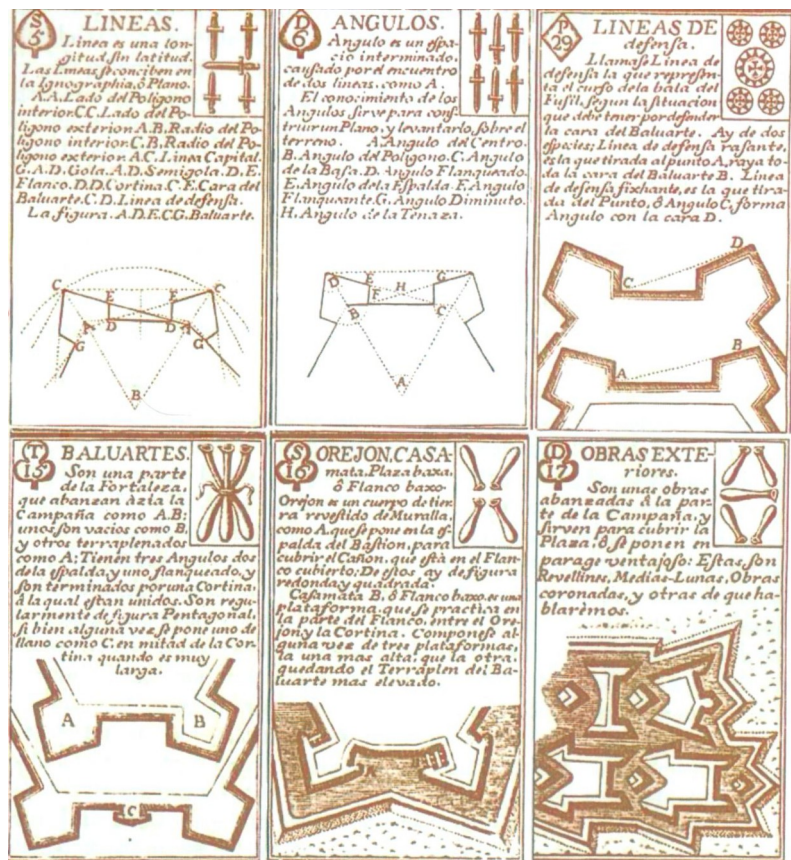 S
5
LINEAS.
Linea es una lon-
gitud sin latitud.
Las Lineas se conciben en
la Ignographia, ô Plano.
A.A. Lado del Poligono
interior. C.C. Lado del Po-
ligono exterior. A.B. Radio del Po-
ligono interior. C.B. Radio del Po-
ligono exterior. A.C. Linea Capital.
G.A.D. Gola. A.D. Semigola. D.E.
Flanco. D.D. Cortina. C.E. Cara del
Baluarte. C.D. Linea de defensa.
La figura. A.D.E.C.G. Baluarte.
C
E
E
C
A
D
D
A
G
G
B
D
6
ANGULOS.
Angulo es un espa-
cio interminado,
causado por el encuentro
de dos lineas, como A.
El conocimiento de los
Angulos sirve para cons-
truir un Plano, y levantarlo sobre el
terreno. A. Angulo del Centro.
B. Angulo del Poligono. C. Angulo
de la Basa. D. Angulo Flanqueado.
E. Angulo de la Espalda. F. Angulo
Flanqueante. G. Angulo Diminuto.
H. Angulo de la Tenaza.
D
E
F
H
G
B
C
A
P
29
LINEAS DE
defensa.
Llamase Linea de
defensa la que represen-
ta el curso de la bala del
Fusil, segun la situacion
que debe tener por defender
la cara del Baluarte. Ay de dos
especies; Linea de defensa rasante,
es la que tirada al punto A, raya to-
da la cara del Baluarte B. Linea
de defensa fixhante, es la que tira-
da del Punto, ô Angulo C, forma
Angulo con la cara D.
D
C
B
A
T
15
BALUARTES.
Son una parte
de la Fortaleza,
que abanzan âzia la
Campaña como A.B;
unos son vacios como B,
y otros terraplenados
como A; Tienen tres Angulos dos
de la espalda y uno flanqueado, y
son terminados por una Cortina,
â la qual estan unidos. Son regu-
larmente de figura Pentagonal,
si bien alguna vez se pone uno de
llano como C, en mitad de la Cor-
tina quando es muy
larga.
A
B
C
S
16
OREJON, CASA-
mata, Plaza baxa,
ô Flanco baxo.
Orejon es un cuerpo de tier-
ra revestido de Muralla,
como A, que se pone en la es-
palda del Bastion, para
cubrir el Cañon, que està en el Flan-
co cubierto; De estos ay de figura
redonda y quadrada.
Casamata B, ô Flanco baxo, es una
plataforma, que se practica en
la parte del Flanco, entre el Ore-
jon y la Cortina. Componese al-
guna vez de tres plataformas,
la una mas alta, que la otra,
quedando el Terraplen del Ba-
luarte mas elevado.
D
17
OBRAS EXTE-
riores.
Son unas obras
abanzadas â la par-
te de la Campaña, y
sirven para cubrir la
Plaza, ô se ponen en
parage ventajoso: Estas son
Revellines, Medias-Lunas, Obras
coronadas, y otras de que ha-
blarêmos.